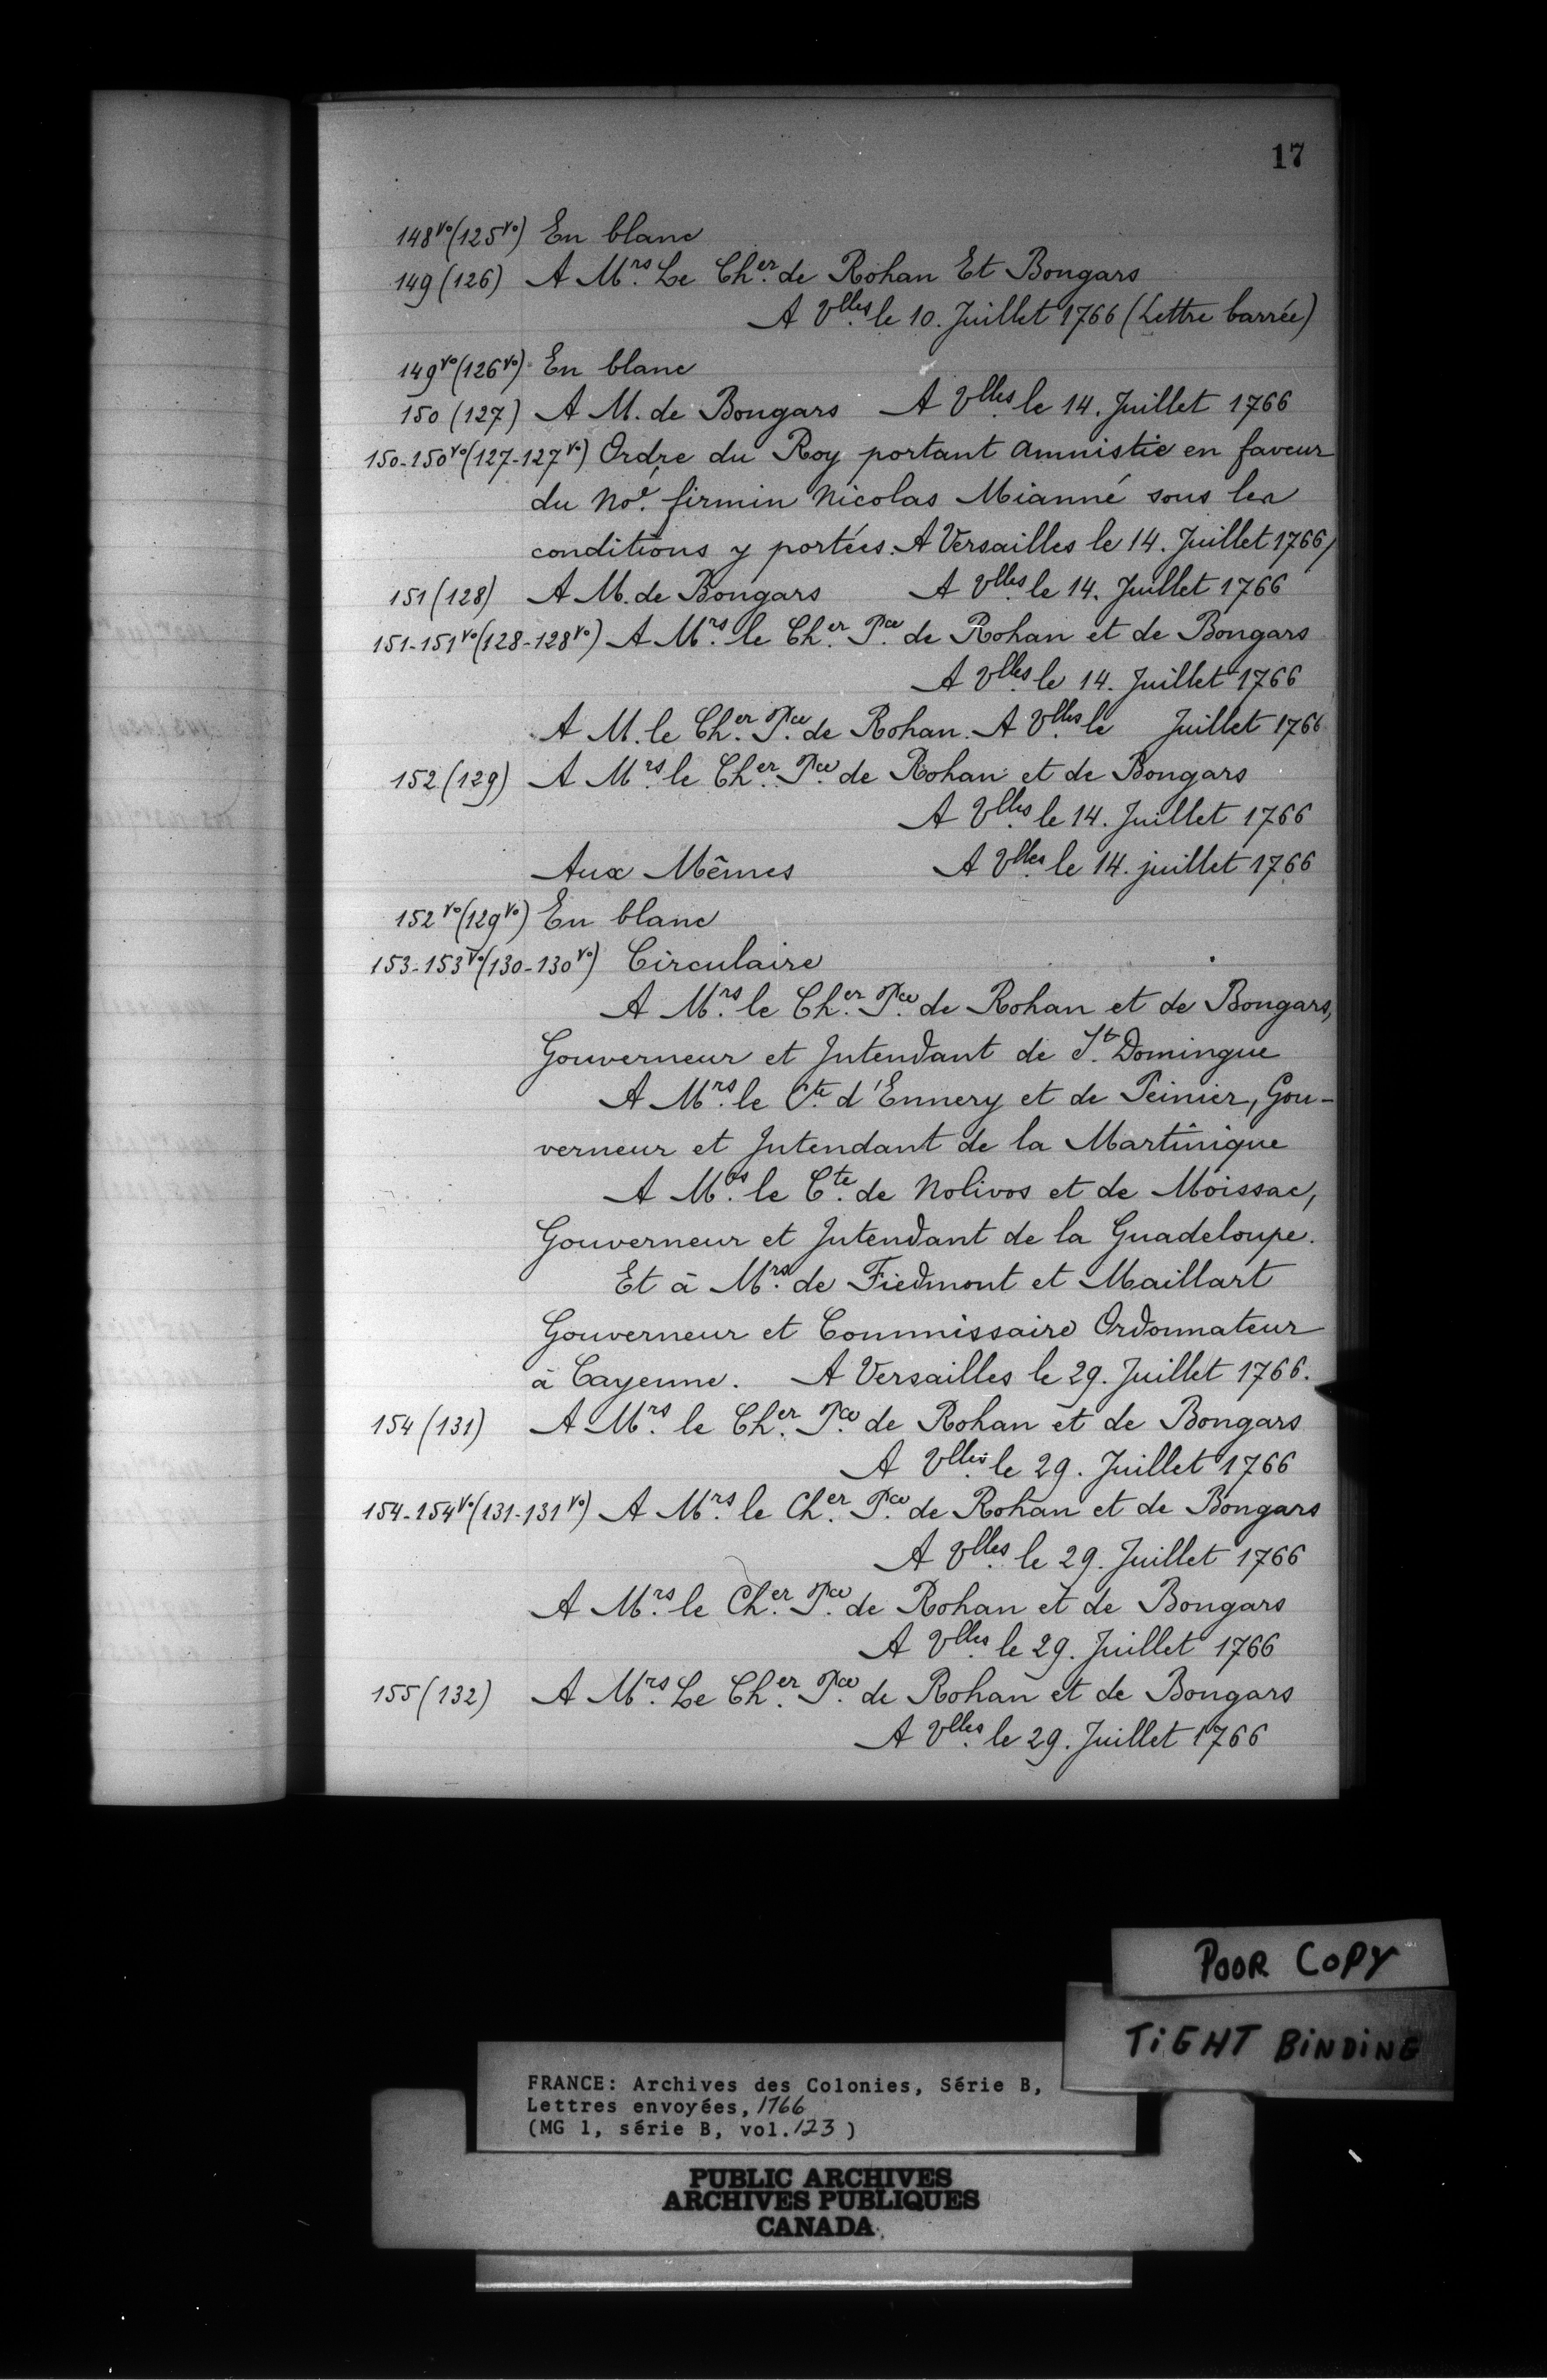 17
148vo(125vo) En blanc
149 (126) A Mrs. Le Cher. de Rohan Et Bongars
A Vlles. le 10. Juillet 1766 (Lettre barrée)
149vo(126vo) En blanc
150 (127) A M. de Bongars A Vlles. le 14. Juillet 1766
150-150vo(127-127vo) Ordre du Roy portant amnistie en faveur
du Noé. firmin Nicolas Mianné sous les
conditions y portées. A Versailles le 14. Juillet 1766
151 (128) A M. de Bongars A Vlles. le 14. Juillet 1766
151-151vo(128-128vo) A Mrs. le Cher. Pce. de Rohan et de Bongars
A Vlles. le 14. Juillet 1766
A M. le Cher. Pce. de Rohan. A Vlles. le Juillet 1766
152 (129) A Mrs. le Cher. Pce. de Rohan et de Bongars
A Vlles. le 14. Juillet 1766
Aux Mêmes A Vlles. le 14. juillet 1766
152vo(129vo) En blanc
153-153vo(130-130vo) Circulaire
A Mrs. le Cher. Pce. de Rohan et de Bongars,
Gouverneur et Intendant de St. Domingue
A Mrs. le Cte. d'Ennery et de Peinier, Gou-
verneur et Intendant de la Martinique
A Mrs. le Cte. de Nolivos et de Moissac,
Gouverneur et Intendant de la Guadeloupe.
Et à Mrs. de Fiedmont et Maillart
Gouverneur et Commissaire Ordonnateur
à Cayenne. A Versailles le 29. Juillet 1766.
154 (131) A Mrs. le Cher. Pce. de Rohan et de Bongars
A Vlles. le 29. Juillet 1766
154-154vo(131-131vo) A Mrs. le Cher. Pce. de Rohan et de Bongars
A Vlles. le 29. Juillet 1766
A Mrs. le Cher. Pce. de Rohan et de Bongars
A Vlles. le 29. Juillet 1766
155 (132) A Mrs. Le Cher. Pce. de Rohan et de Bongars
A Vlles. le 29. Juillet 1766
POOR COPY
TIGHT BINDING
FRANCE: Archives des Colonies, Série B,
Lettres envoyées, 1766
(MG 1, série B, vol. 123 )
PUBLIC ARCHIVES
ARCHIVES PUBLIQUES
CANADA